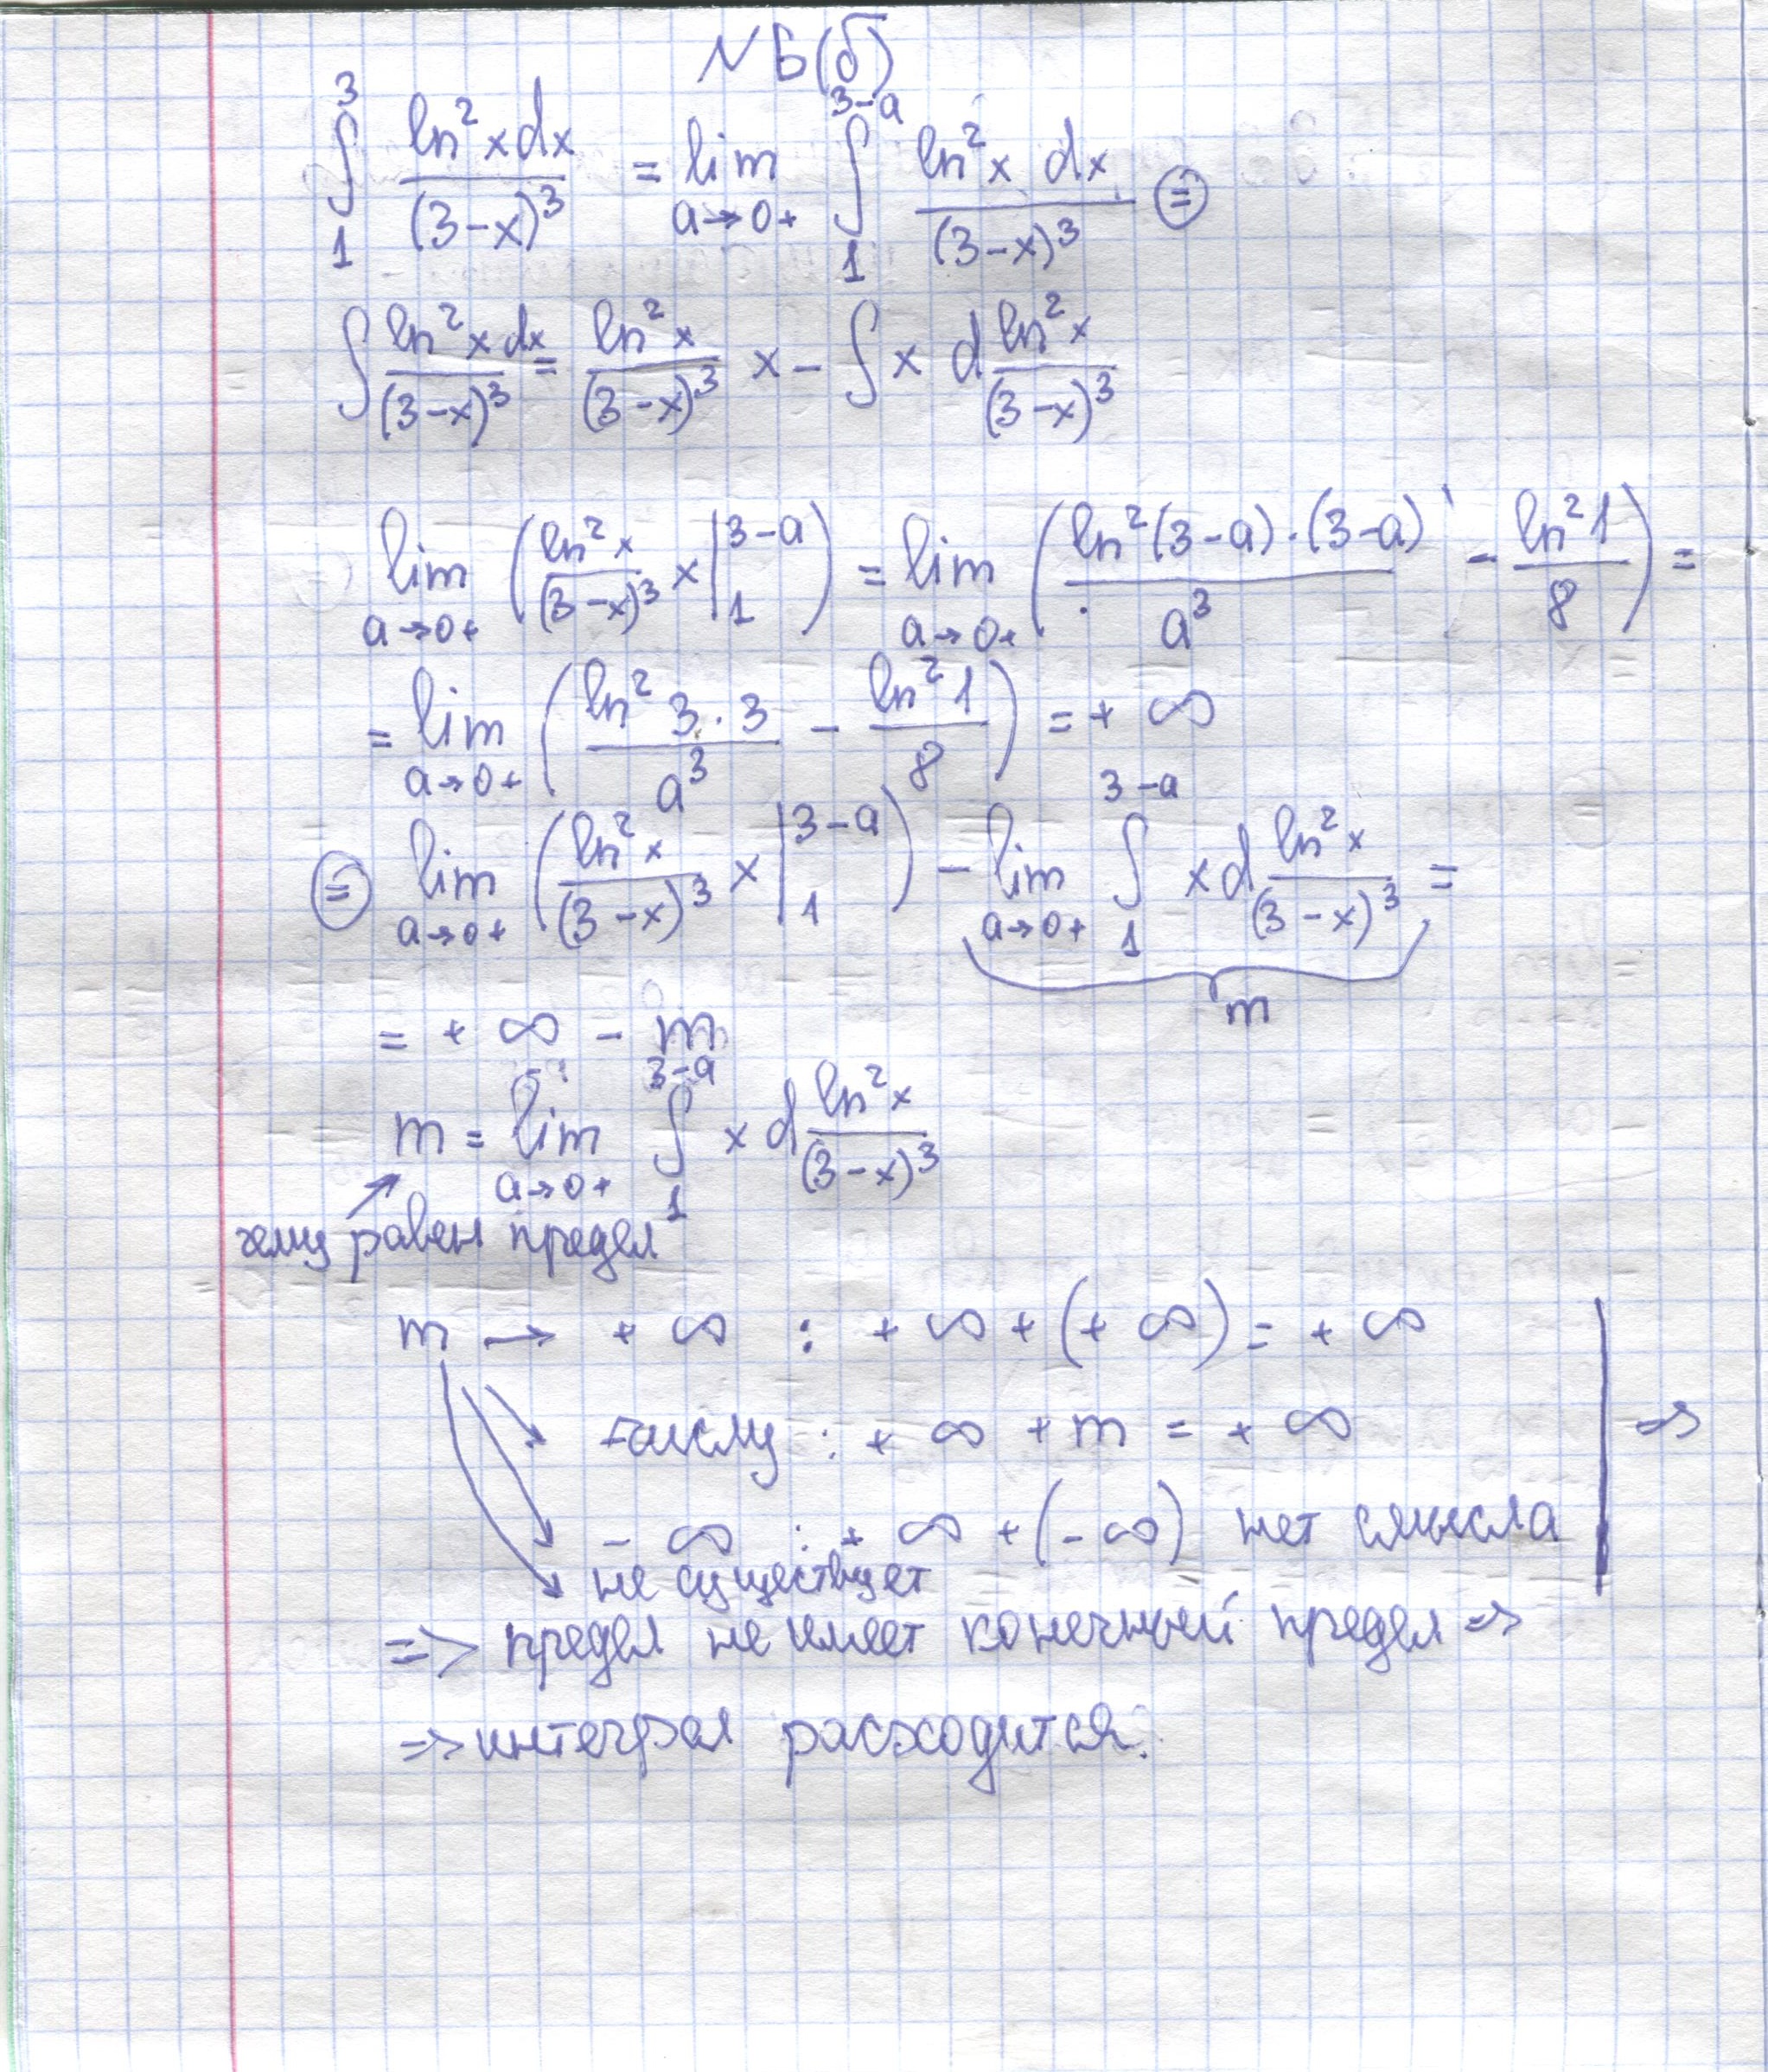 N6(б)
∫₁³ ln²x dx / (3-x)³ = lim a→0+ ∫₁^(3-a) ln²x dx / (3-x)³ ⊜
∫ ln²x dx / (3-x)³ = ln²x / (3-x)³ x - ∫ x d ln²x / (3-x)³
lim a→0+ ( ln²x / (3-x)³ x |₁^(3-a) ) = lim a→0+ ( ln²(3-a)·(3-a) / a³ - ln²1 / 8 ) =
= lim a→0+ ( ln²3·3 / a³ - ln²1 / 8 ) = + ∞
⊜ lim a→0+ ( ln²x / (3-x)³ x |₁^(3-a) ) - lim a→0+ ∫₁^(3-a) x d ln²x / (3-x)³ =
m
= + ∞ - m
m = lim a→0+ ∫₁^(3-a) x d ln²x / (3-x)³
чему равен предел
m → + ∞ : + ∞ + (+ ∞) = + ∞
числу : + ∞ + m = + ∞ ⇒
- ∞ : + ∞ + (- ∞) нет смысла
не существует
=> предел не имеет конечный предел =>
=> интеграл расходится.